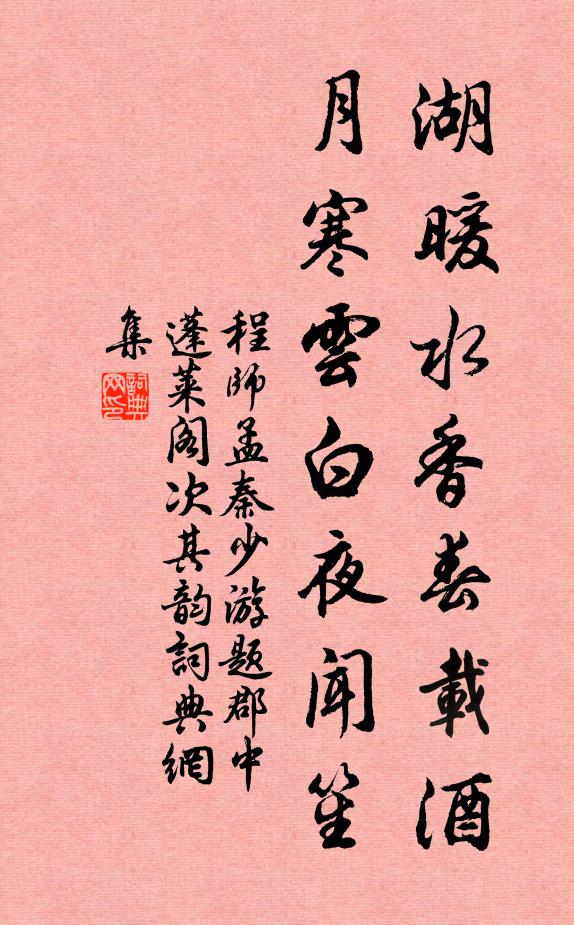 湖暖水香春載酒
月寒雲白夜聞笙
程師孟秦少游題郡中
蓬萊閣次其韵詞典網
集
詞典
网印